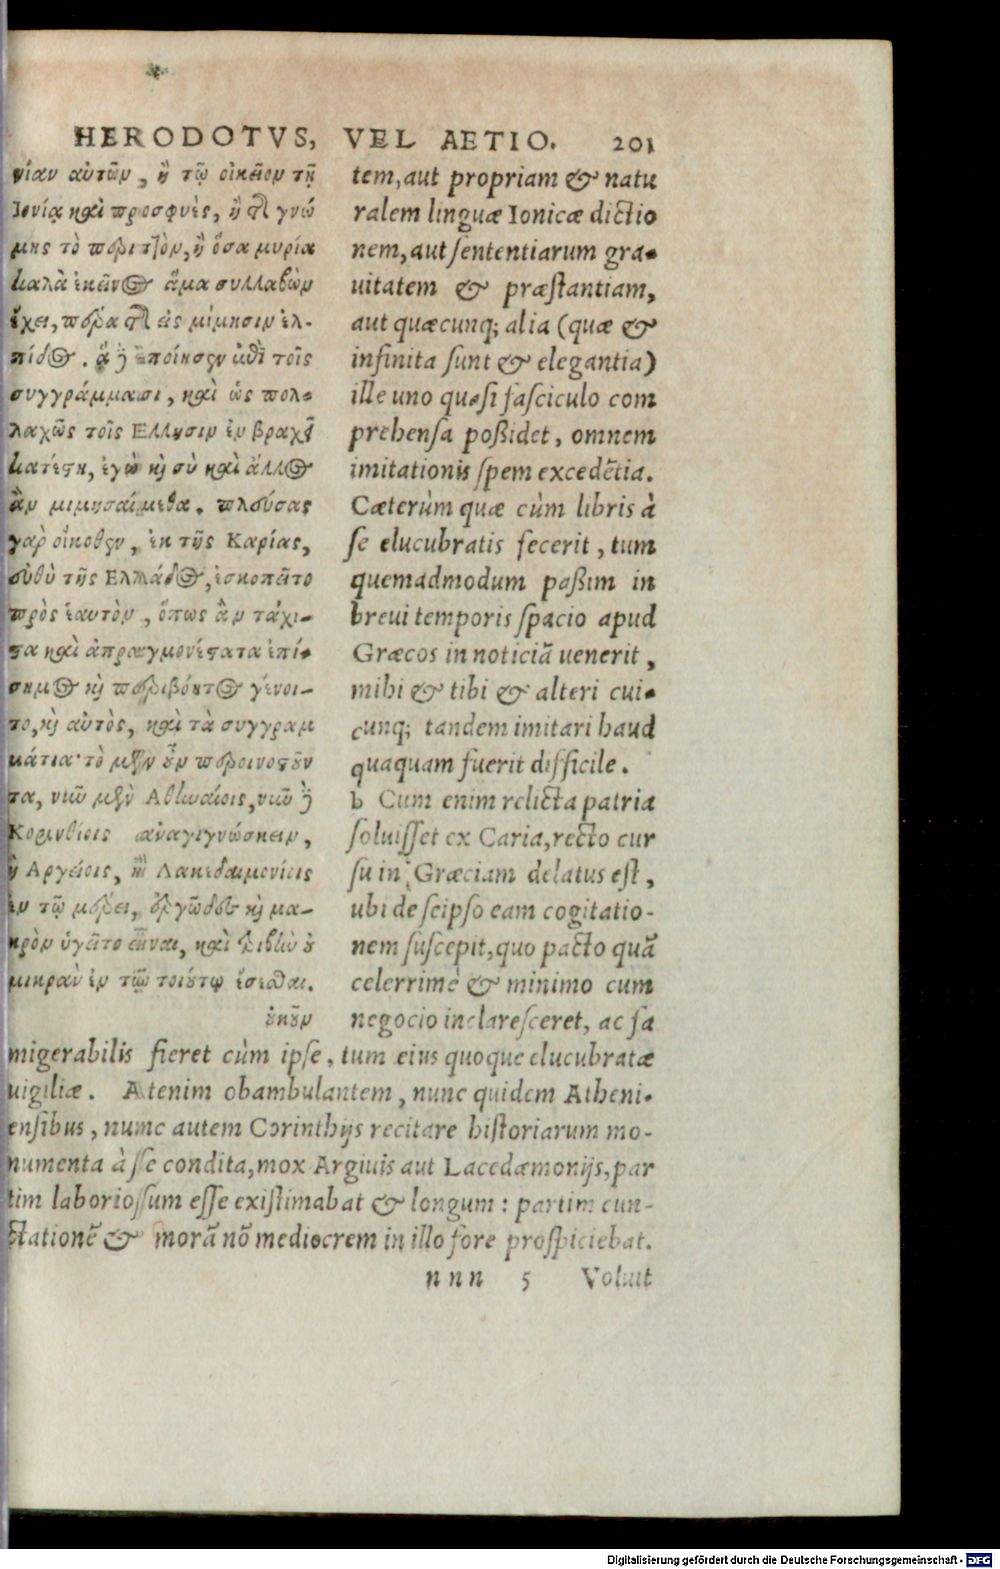 HERODOTVS, VEL AETIO. 201
νίαν αὐτῶν, ἢ τῷ οἰκεῖον τῇ
Ἰονίᾳ καὶ προσφυὲς, ἢ τῆς γνώ
μης τὸ περιττὸν, ἢ ὅσα μυρία
καλὰ ἐκεῖνος ἅμα συλλαβὼν
ἔχει, πέρα τῆς εἰς μίμησιν ἐλ-
πίδος. ἃ δὲ ἐποίησεν ἐπὶ τοῖς
συγγράμμασι, καὶ ὡς πολ-
λαχῶς τοῖς Ἕλλησιν ἐν βραχεῖ
κατέστη, ἐγὼ καὶ σὺ καὶ ἄλλος
ἂν μιμησαίμεθα. πλεύσας
γὰρ οἴκοθεν, ἐκ τῆς Καρίας,
εὐθὺ τῆς Ἑλλάδος, ἐσκοπεῖτο
πρὸς ἑαυτὸν, ὅπως ἂν τάχι-
στα καὶ ἀπραγμονέστατα ἐπί-
σημος καὶ περιβόητος γένοι-
το, καὶ αὐτὸς, καὶ τὰ συγγραμ
μάτια· τὸ μὲν οὖν περινοστοῦν
τα, νῦν μὲν Ἀθηναίοις, νῦν δὲ
Κορινθίοις ἀναγιγνώσκειν,
ἢ Ἀργείοις, ἢ Λακεδαιμονίοις
ἐν τῷ μέρει, ἐργῶδες καὶ μα-
κρὸν ἡγεῖτο εἶναι, καὶ τριβὴν οὐ
μικρὰν ἐν τῷ τοιούτῳ ἔσεσθαι.
οὐκοῦν
tem, aut propriam & natu
ralem linguæ Ionicæ dictio
nem, aut sententiarum gra-
uitatem & præstantiam,
aut quæcunq; alia (quæ &
infinita sunt & elegantia)
ille uno quasi fasciculo com
prehensa poßidet, omnem
imitationis spem excedētia.
Cæterùm quæ cùm libris à
se elucubratis fecerit, tum
quemadmodum paßim in
breui temporis spacio apud
Græcos in noticiā uenerit,
mihi & tibi & alteri cui-
cunq; tandem imitari haud
quaquam fuerit difficile.
b Cum enim relicta patria
soluisset ex Caria, recto cur
su in Græciam delatus est,
ubi de seipso eam cogitatio-
nem suscepit, quo pacto quā
celerrimè & minimo cum
negocio inclaresceret, ac fa
migerabilis fieret cùm ipse, tum eius quoque elucubratæ
uigiliæ. Atenim obambulantem, nunc quidem Atheni-
ensibus, nunc autem Corinthijs recitare historiarum mo-
numenta à sse condita, mox Argiuis aut Lacedæmonijs, par
tim laboriossum esse existimabat & longum: partim cun-
ctationē & morā nō mediocrem in illo fore prospiciebat.
nnn 5 Voluit
Digitalisierung gefördert durch die Deutsche Forschungsgemeinschaft - DFG